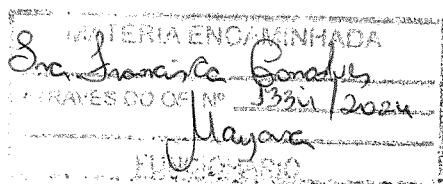 MATÉRIA ENCAMINHADA
Sra. Francisca
ATRAVÉS DO OF Nº /2024
Mayara
FUNCIONÁRIO